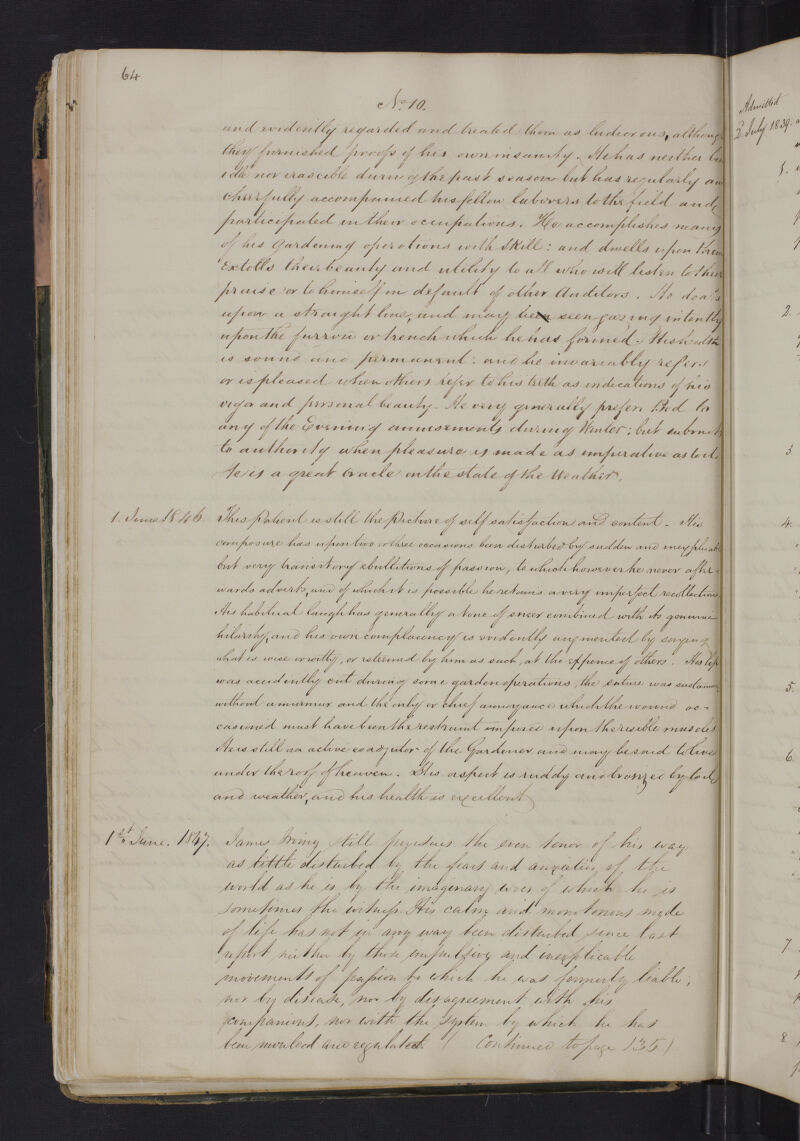 64
No. 10.
and evidently regarded and treated them as ludicrous, although
they furnished proofs of his own insanity. He has neither been
idle nor irascible during the past season but has regularly and
cheerfully accompanied his fellow labourers to the field and
participated in their occupations. He accomplishes many
of his gardening operations with skill: and dwells upon them
Extolls their beauty and utility to all who will listen to their
praise or to himself in default of other Auditors. He doats
upon a straight line, and may be seen gazing intently
upon the furrow or trench which he has formed. His health
is sound and permanent: and he invariably refers
or is pleased when others refer to his teeth as indications of his
vigor and personal beauty. He very generally prefers Bed to
any of the Evening amusements during Winter; but submits
to authority when pleasure is made as imperative as toil
He is a great Oracle on the state of the Weather.
1. June 1846. This Patient is still the Picture of self satisfaction and content. His
composure has upon two or three occasions been disturbed by sudden and inexplicable
but very transitory ebullitions of passion, to which however he never after-
wards adverts, and of which it is possible he retains a very imperfect recollection
His habitual laugh has generally a tone of sneer combined with its genuine
hilarity, and his own complacency is evidently augmented by saying
what is wise or witty, or esteemed by him as such, at the expence of others. His lip
was accidently cut during some garden operations, the suture was sustained
without a murmur and the only or chief annoyance which the wound oc-
casioned must have been the restraint imposed upon the risible muscles
He is still an active coadjutor of the Gardener and may be said to live
under the roof of heaven. His aspect is ruddy and bronzed by toil
and weather, and his health is excellent
1st June. 1847. James Irving still pursues the even tenor of his way
as little disturbed by the fears and anxieties of the
world as he is by the imaginary woes of which he is
sometimes the witness. His calm and monotonous mode
of life has not in any way been disturbed since last
report neither by those impulsive and inexplicable
movements of passion to which he was formerly liable;
nor by disease, nor by disagreement with his
companions, nor with the system by which he has
been moulded and regulated. (Continued to page 135)
Admitted
2 July 1839.
1.
2.
3
4.
5.
6.
7.
8.